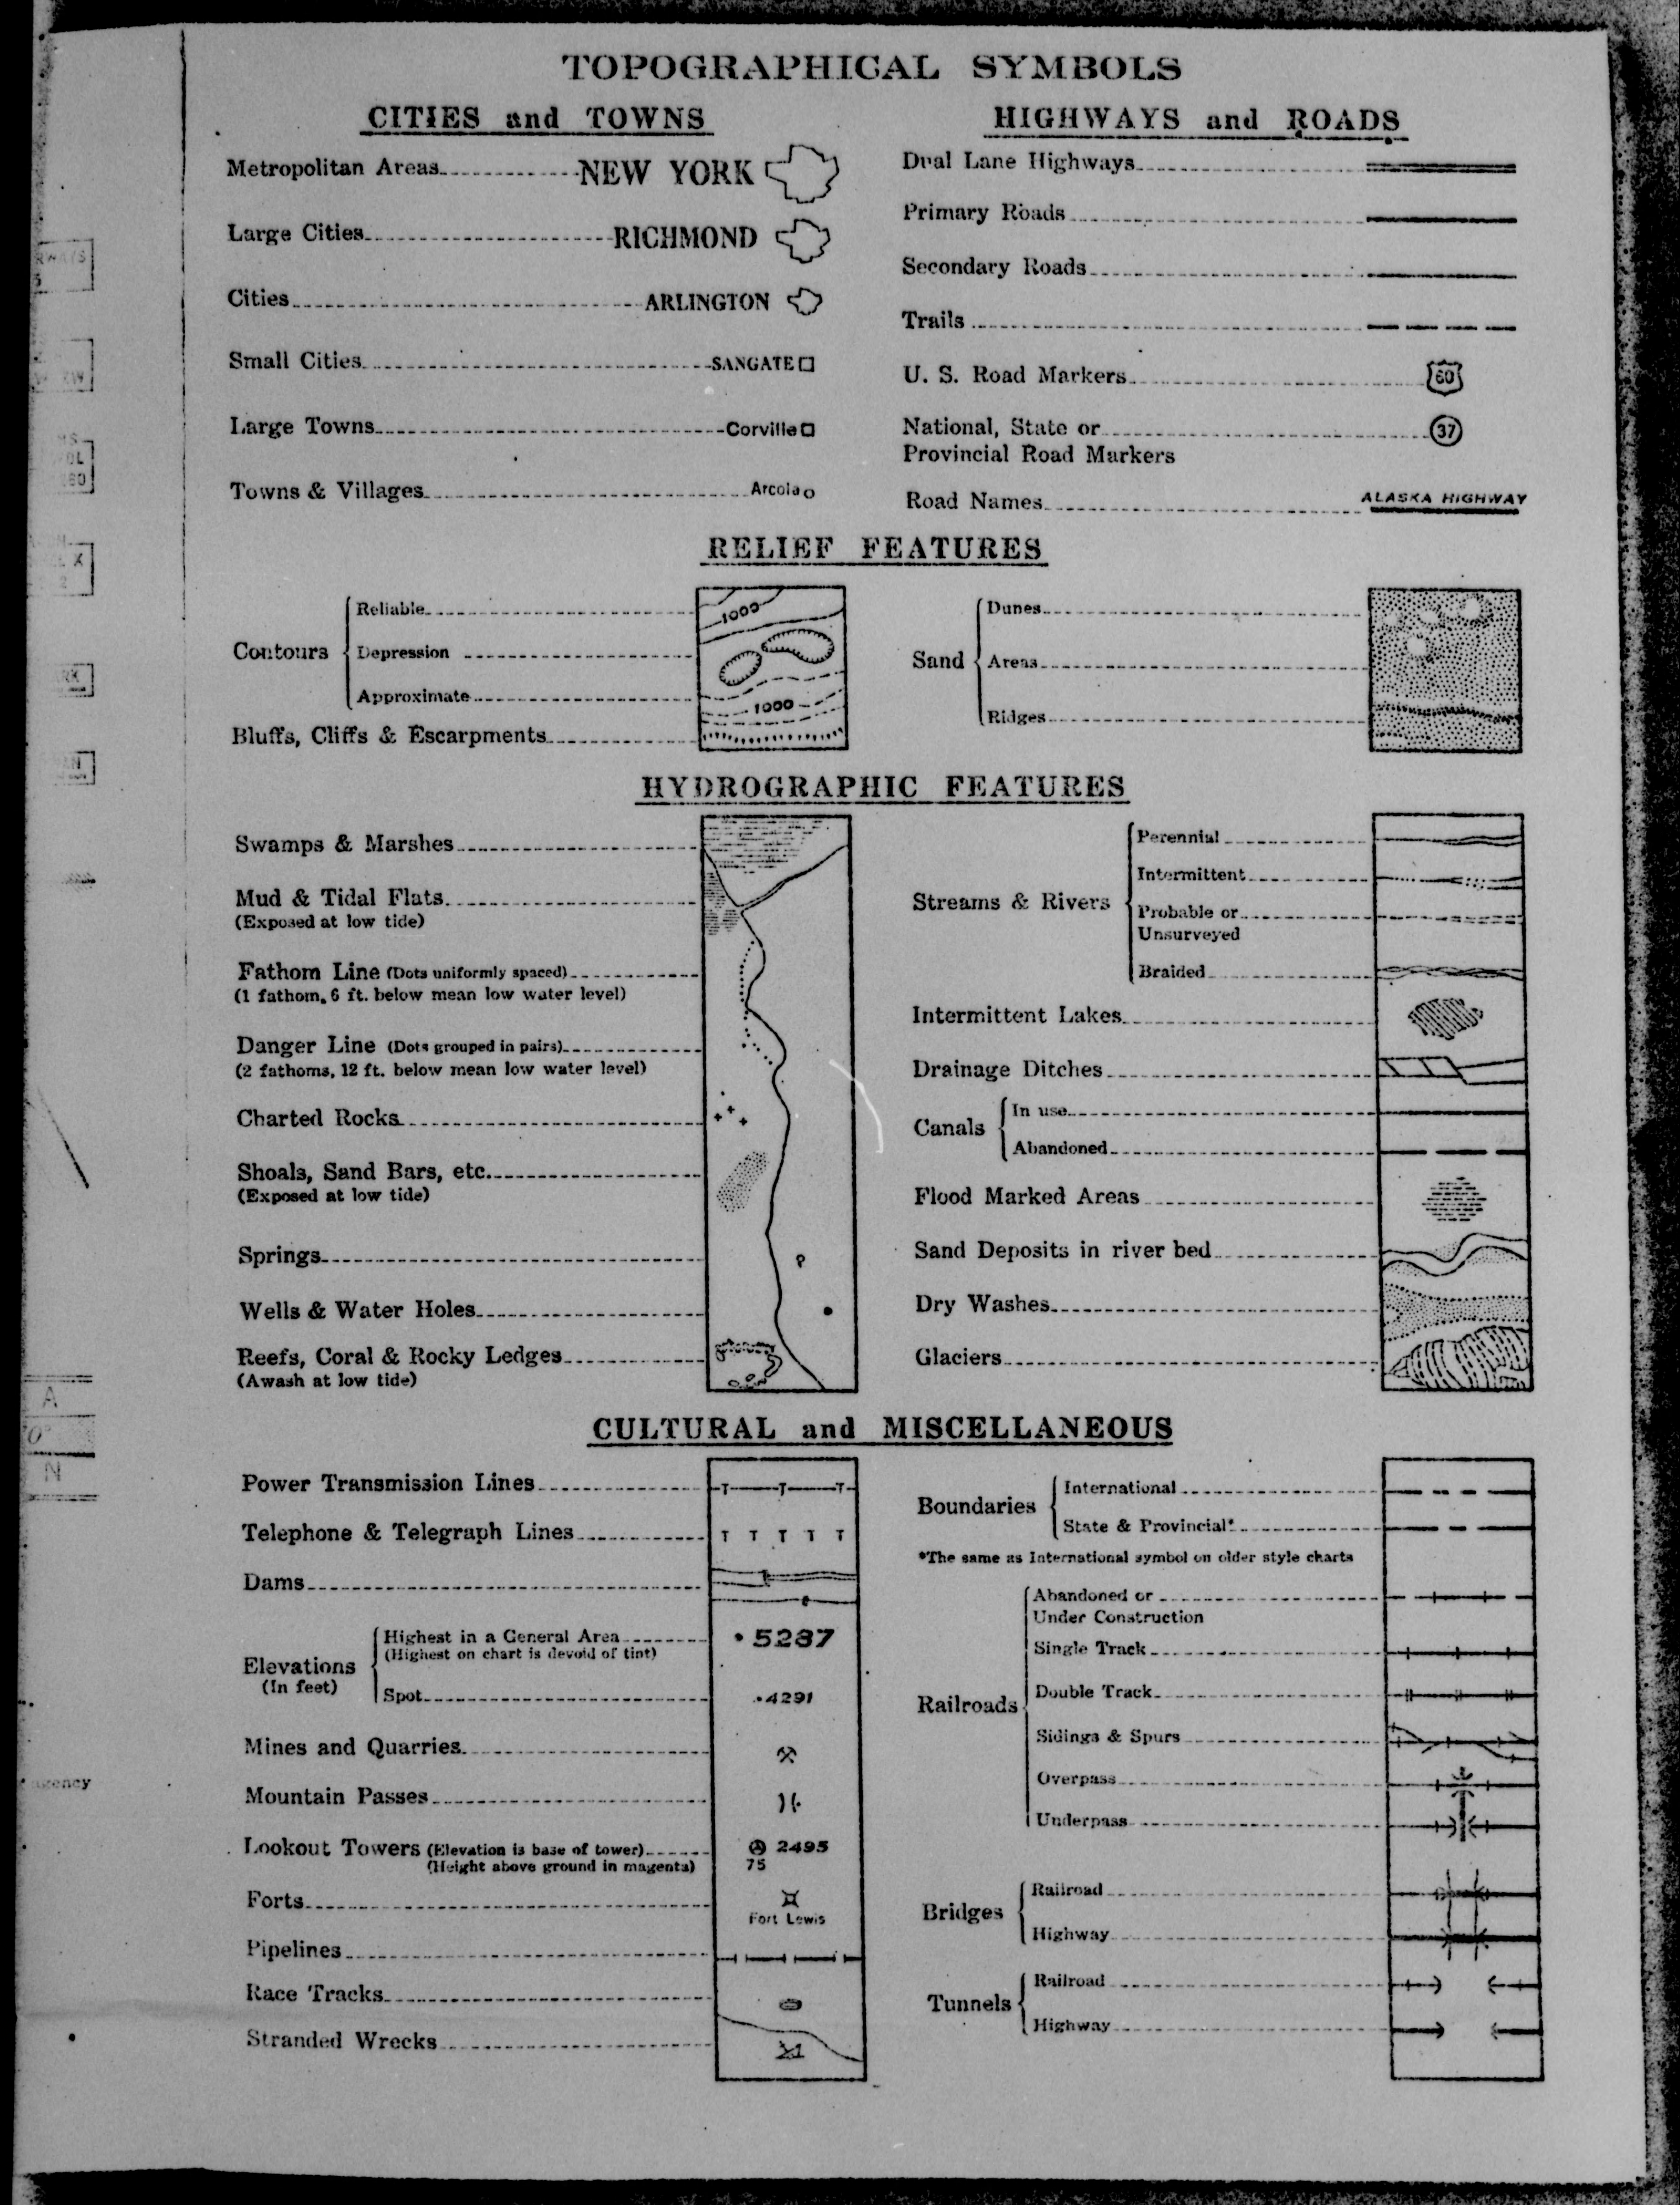 TOPOGRAPHICAL SYMBOLS
CITIES and TOWNS
Metropolitan Areas NEW YORK
Large Cities RICHMOND
Cities ARLINGTON
Small Cities SANGATE
Large Towns Corville
Towns & Villages Arcola
HIGHWAYS and ROADS
Dual Lane Highways
Primary Roads
Secondary Roads
Trails
U. S. Road Markers 60
National, State or 37
Provincial Road Markers
Road Names ALASKA HIGHWAY
RELIEF FEATURES
Contours
Reliable 1000
Depression
Approximate 1000
Bluffs, Cliffs & Escarpments
Sand
Dunes
Areas
Ridges
HYDROGRAPHIC FEATURES
Swamps & Marshes
Mud & Tidal Flats
(Exposed at low tide)
Fathom Line (Dots uniformly spaced)
(1 fathom, 6 ft. below mean low water level)
Danger Line (Dots grouped in pairs)
(2 fathoms, 12 ft. below mean low water level)
Charted Rocks
Shoals, Sand Bars, etc.
(Exposed at low tide)
Springs
Wells & Water Holes
Reefs, Coral & Rocky Ledges
(Awash at low tide)
Streams & Rivers
Perennial
Intermittent
Probable or
Unsurveyed
Braided
Intermittent Lakes
Drainage Ditches
Canals
In use
Abandoned
Flood Marked Areas
Sand Deposits in river bed
Dry Washes
Glaciers
CULTURAL and MISCELLANEOUS
Power Transmission Lines T T T
Telephone & Telegraph Lines T T T T T
Dams
Elevations
(In feet)
Highest in a General Area 5287
(Highest on chart is devoid of tint)
Spot 4291
Mines and Quarries
Mountain Passes
Lookout Towers (Elevation is base of tower) 2495
(Height above ground in magenta) 75
Forts
Fort Lewis
Pipelines
Race Tracks
Stranded Wrecks
Boundaries
International
State & Provincial*
*The same as International symbol on older style charts
Railroads
Abandoned or
Under Construction
Single Track
Double Track
Sidings & Spurs
Overpass
Underpass
Bridges
Railroad
Highway
Tunnels
Railroad
Highway